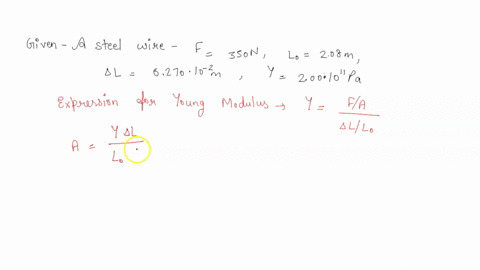 Given - A steel wire - F = 350N, L₀ = 2.08m,
ΔL = 0.270·10⁻² m, Y = 2.00·10¹¹ Pa
Expression for Young Modulus → Y = F/A / ΔL/L₀
A = YΔL / L₀